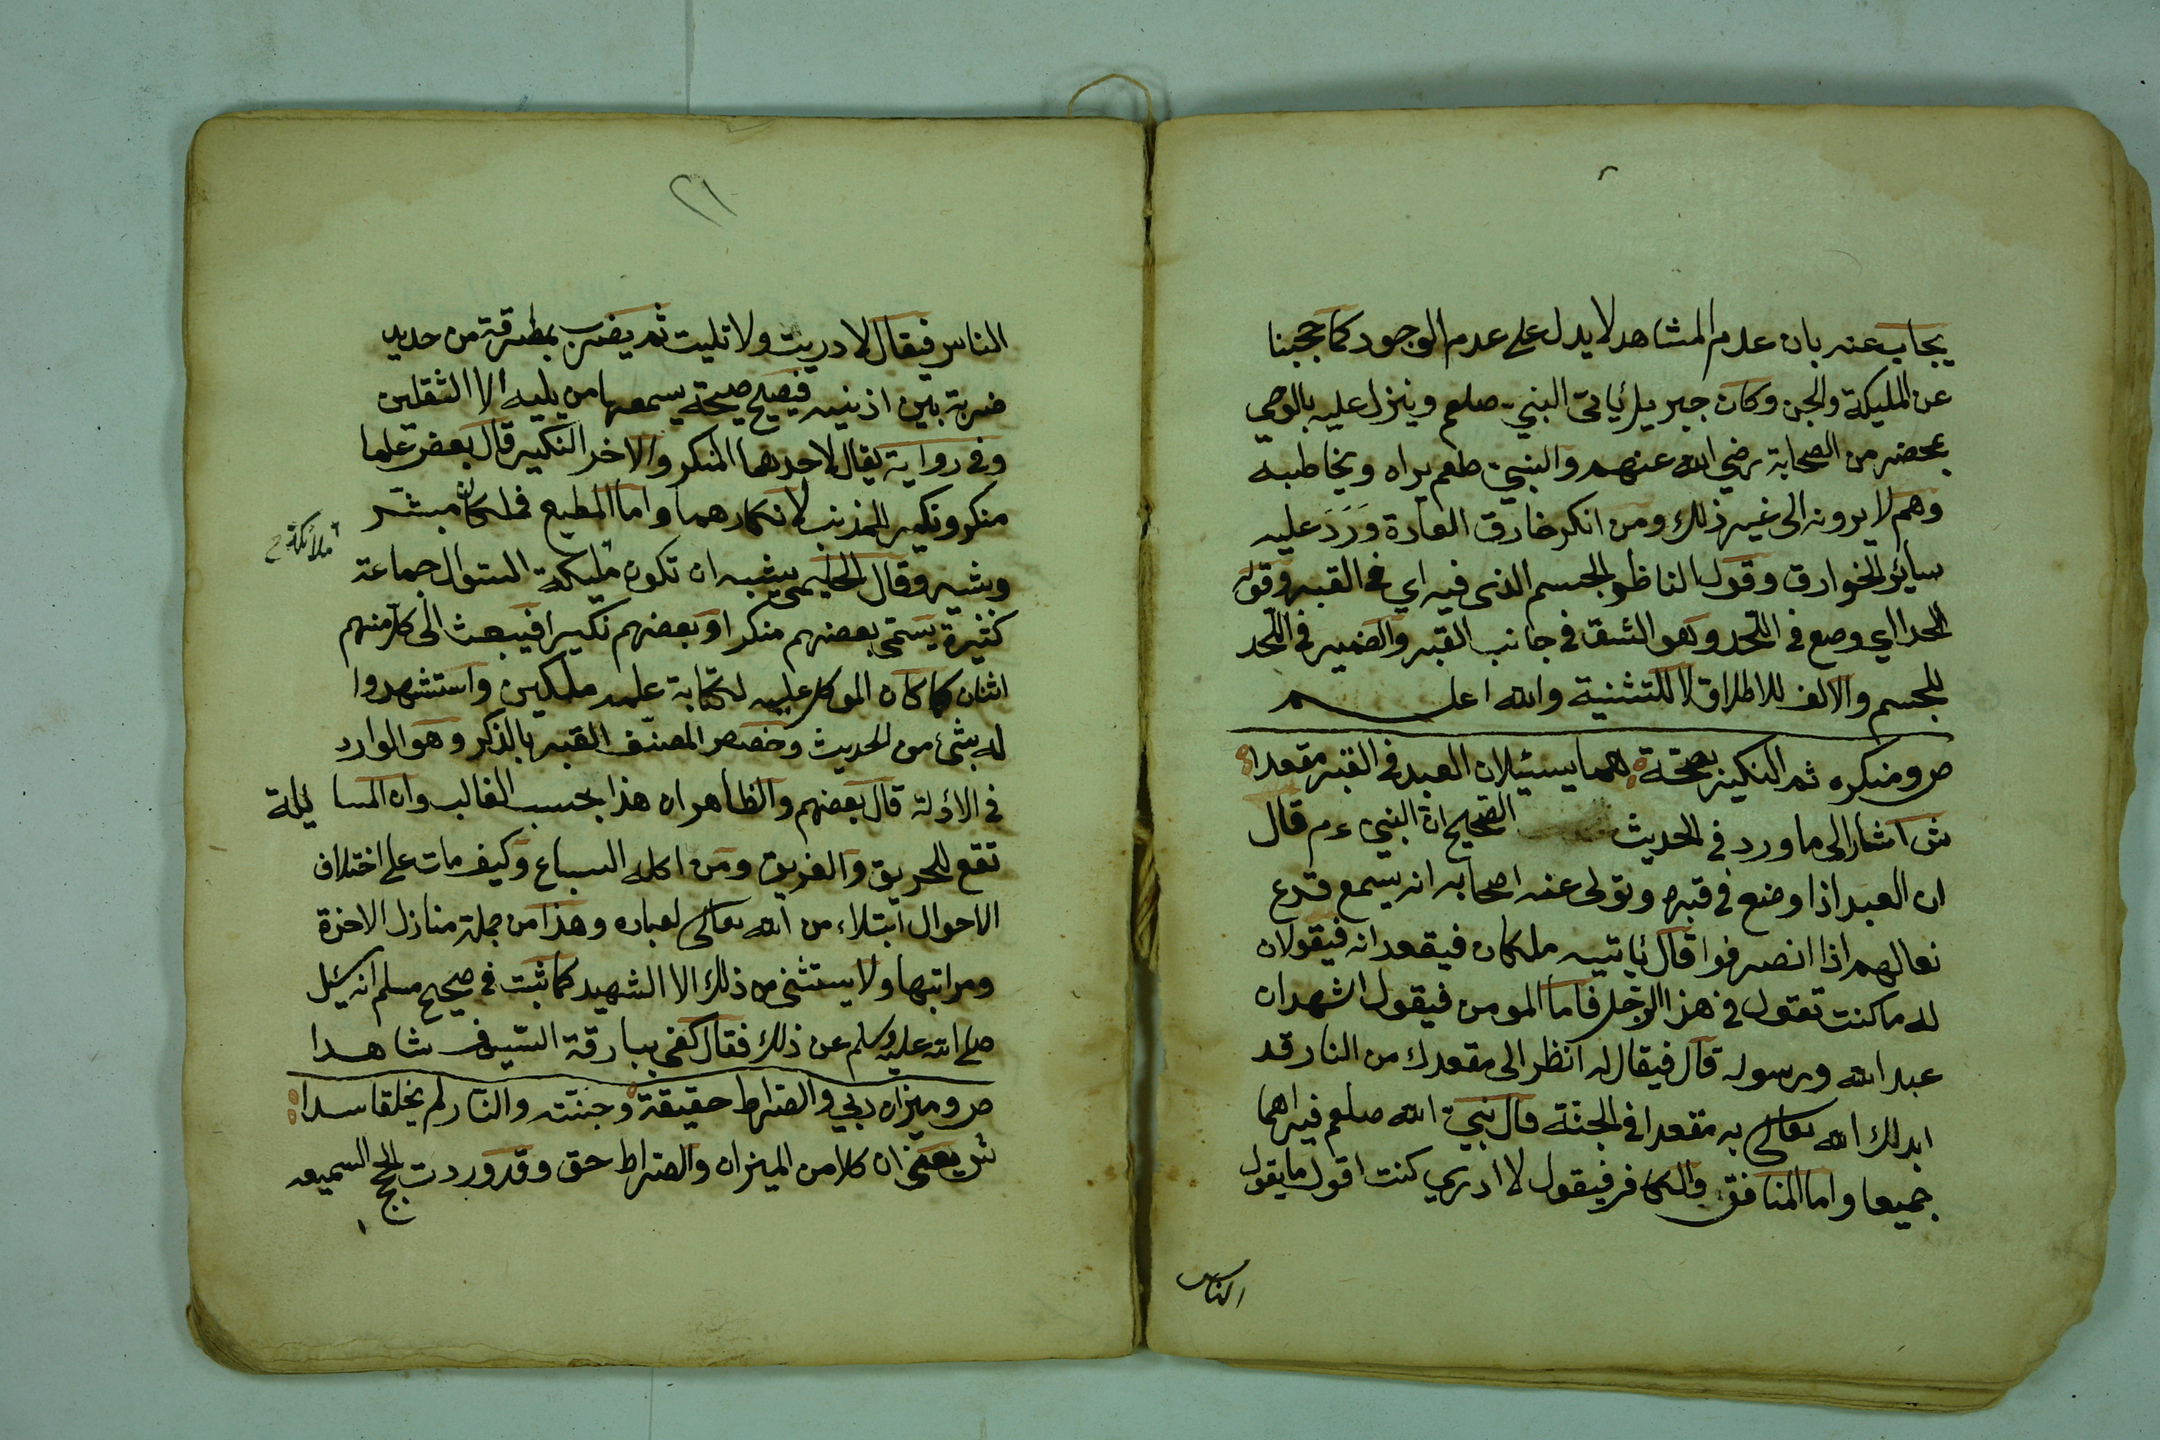 يجاب عنه بان عدم المشاهد لا يدل على عدم الوجود كما حجبنا
عن المليكة والجن وكان جبريل ياتى النبي صلعم وينزل عليه بالوحي
بمحضر من الصحابة رضي الله عنهم والنبي صلعم يراه ويخاطبه
وهم لا يرونه الى غير ذلك ومن انكر خارق العادة وَرَدَ عليه
ساير الخوارق وقول الناظم الجسم الذى فيه اي في القبر وقوله
الحدا اي وضع فى اللحد وهو الشق في جانب القبر والضمير في اللحد
للجسم والالف للاطلاق لا للتثنية والله اعلم
ص ومنكره ثم النكير بصحة هما يسئيلان العبد في القبر مقعدا
ش اشار الى ما ورد في الحديث الصحيح ان النبي ءم قال
ان العبد اذا وضع في قبره وتولى عنه اصحابه انه يسمع قرع
نعالهم اذا انصرفوا قال ياتيه ملكان فيقعدانه فيقولان
له ما كنت تقول في هذا الرجل فاما المومن فيقول اشهد ان
عبد الله ورسوله قال فيقال له انظر الى مقعدك من النار قد
ابدلك الله تعالى به مقعدا في الجنة قال نبي الله صلعم فيراهما
جميعا واما المنافق والكافر فيقول لا ادري كنت اقول ما يقول
الناس
٢١
الناس فيقال لا دريت ولا تليت ثم يضرب بمطرقة من حديد
ضربة بين اذنيه فيصيح صيحة يسمعها من يليه الا الثقلين
وفى رواية يقال لاحدهما المنكر والاخر النكير قال بعض علما
منكر ونكير للمذنب لانكارهما واما المطيع فملكان مبشر
ملائكة
وبشير وقال الحليمى يشبه ان تكون مليكة السئوال جماعة
كثيرة يسمى بعضهم منكرا وبعضهم نكيرا فيبعث الى كل منهم
اثنان كما كان الموكل عليه لكتابة عمله ملكين واستشهدوا
له بشئ من الحديث وخصص المصنف القبر بالذكر وهو الوارد
فى الادلة قال بعضهم والظاهر ان هذا بحسب الغالب وان المسا يلة
تقع للحريق والغريق ومن اكله السباع وكيف مات على اختلاف
الاحوال ابتلاء من الله تعالى لعباده وهذا من جملة منازل الاخرة
ومراتبها ولا يستثنى من ذلك الا الشهيد كما ثبت في صحيح مسلم انه سئل
صلى الله عليه وسلم عن ذلك فقال كفى ببارقة السيوف شاهدا
ص وميزان ربي والصراط حقيقة وجنته والنار لم يخلقا سدا
ش يعنى ان كلا من الميزان والصراط حق وقد وردت الحجج السمعيه